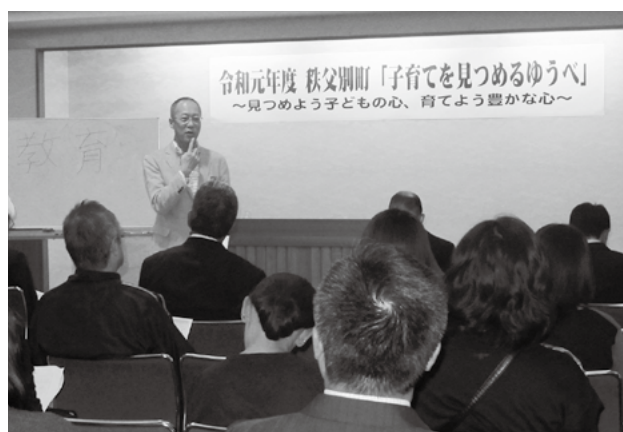 令和元年度 秩父別町「子育てを見つめるゆうべ」
～見つめよう子どもの心、育てよう豊かな心～
教育